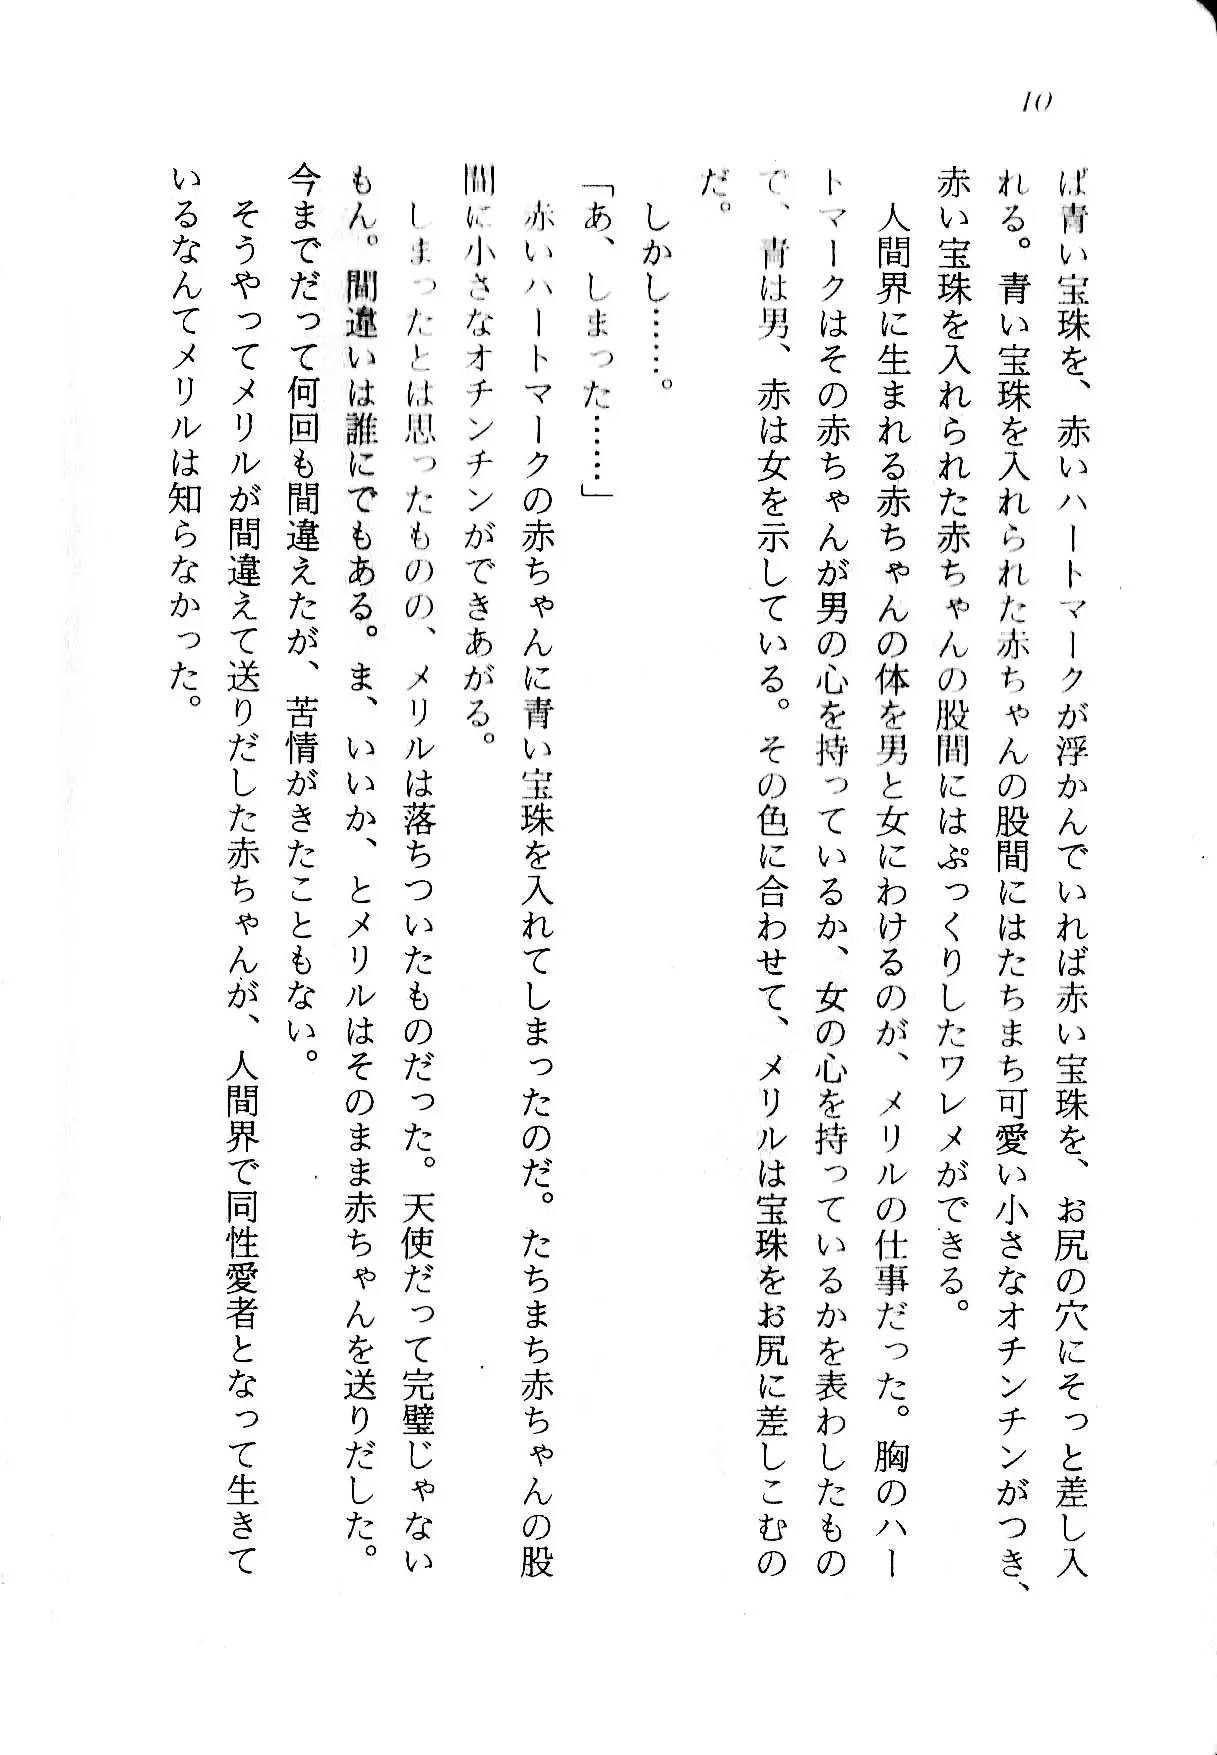 10
ば青い宝珠を、赤いハートマークが浮かんでいれば赤い宝珠を、お尻の穴にそっと差し入
れる。青い宝珠を入れられた赤ちゃんの股間にはたちまち可愛い小さなオチンチンがつき、
赤い宝珠を入れられた赤ちゃんの股間にはぷっくりしたワレメができる。
人間界に生まれる赤ちゃんの体を男と女にわけるのが、メリルの仕事だった。胸のハー
トマークはその赤ちゃんが男の心を持っているか、女の心を持っているかを表わしたもの
で、青は男、赤は女を示している。その色に合わせて、メリルは宝珠をお尻に差しこむの
だ。
しかし……。
「あ、しまった……」
赤いハートマークの赤ちゃんに青い宝珠を入れてしまったのだ。たちまち赤ちゃんの股
間に小さなオチンチンができあがる。
しまったとは思ったものの、メリルは落ちついたものだった。天使だって完璧じゃない
もん。間違いは誰にでもある。ま、いいか、とメリルはそのまま赤ちゃんを送りだした。
今までだって何回も間違えたが、苦情がきたこともない。
そうやってメリルが間違えて送りだした赤ちゃんが、人間界で同性愛者となって生きて
いるなんてメリルは知らなかった。